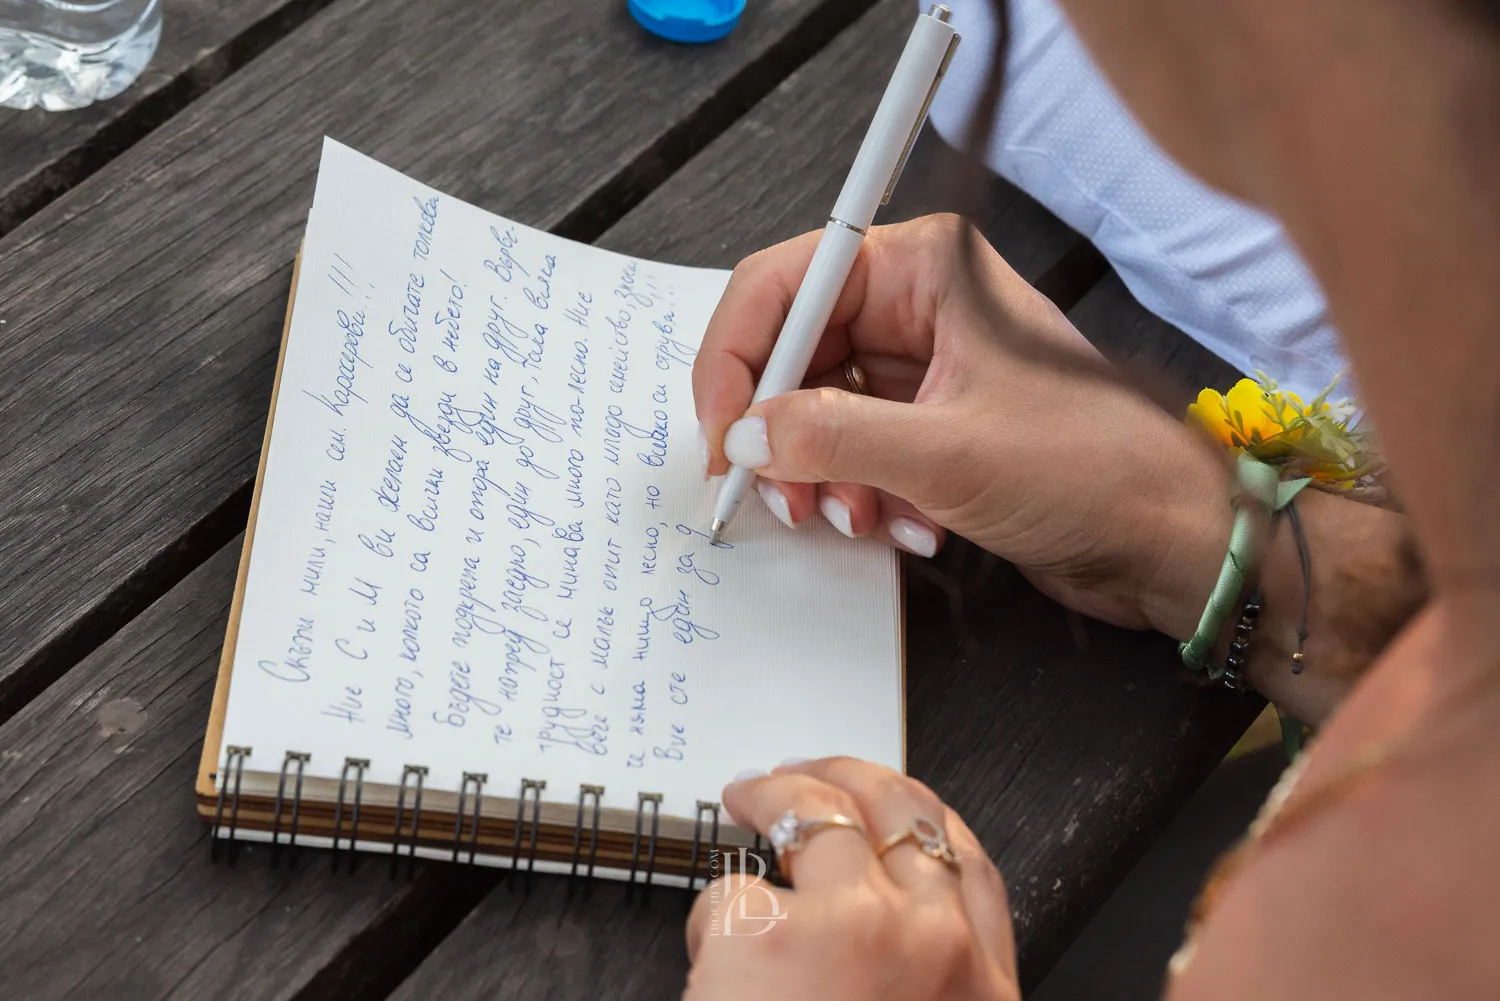 Скъпи мили, наши сем. Касерови!!!
Ние С и М ви желаем да се обичате толкова
много, колкото са всички звезди в небето!
Бъдете подкрепа и опора един на друг. Върве-
те напред заедно, един до друг, така всяка
трудност се минава много по-лесно. Ние
вече с малък опит като младо семейство, знаем
че няма нищо лесно, но всичко си струва!!!
Вие сте един за д
LBOCHEV.COM